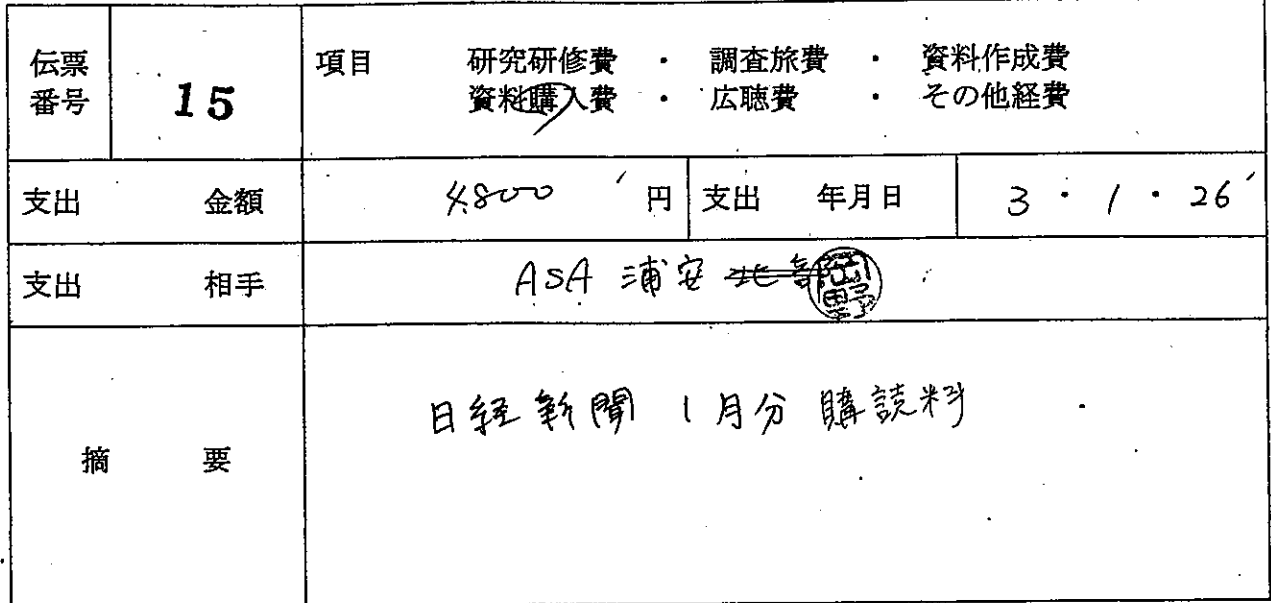 伝票番号 15 項目 研究研修費 ・ 調査旅費 ・ 資料作成費
資料購入費 ・ 広聴費 ・ その他経費
支出 金額 4,800 円 支出 年月日 3・1・26
支出 相手 ASA 浦安 北部 岡野
摘要 日経新聞 1月分 購読料